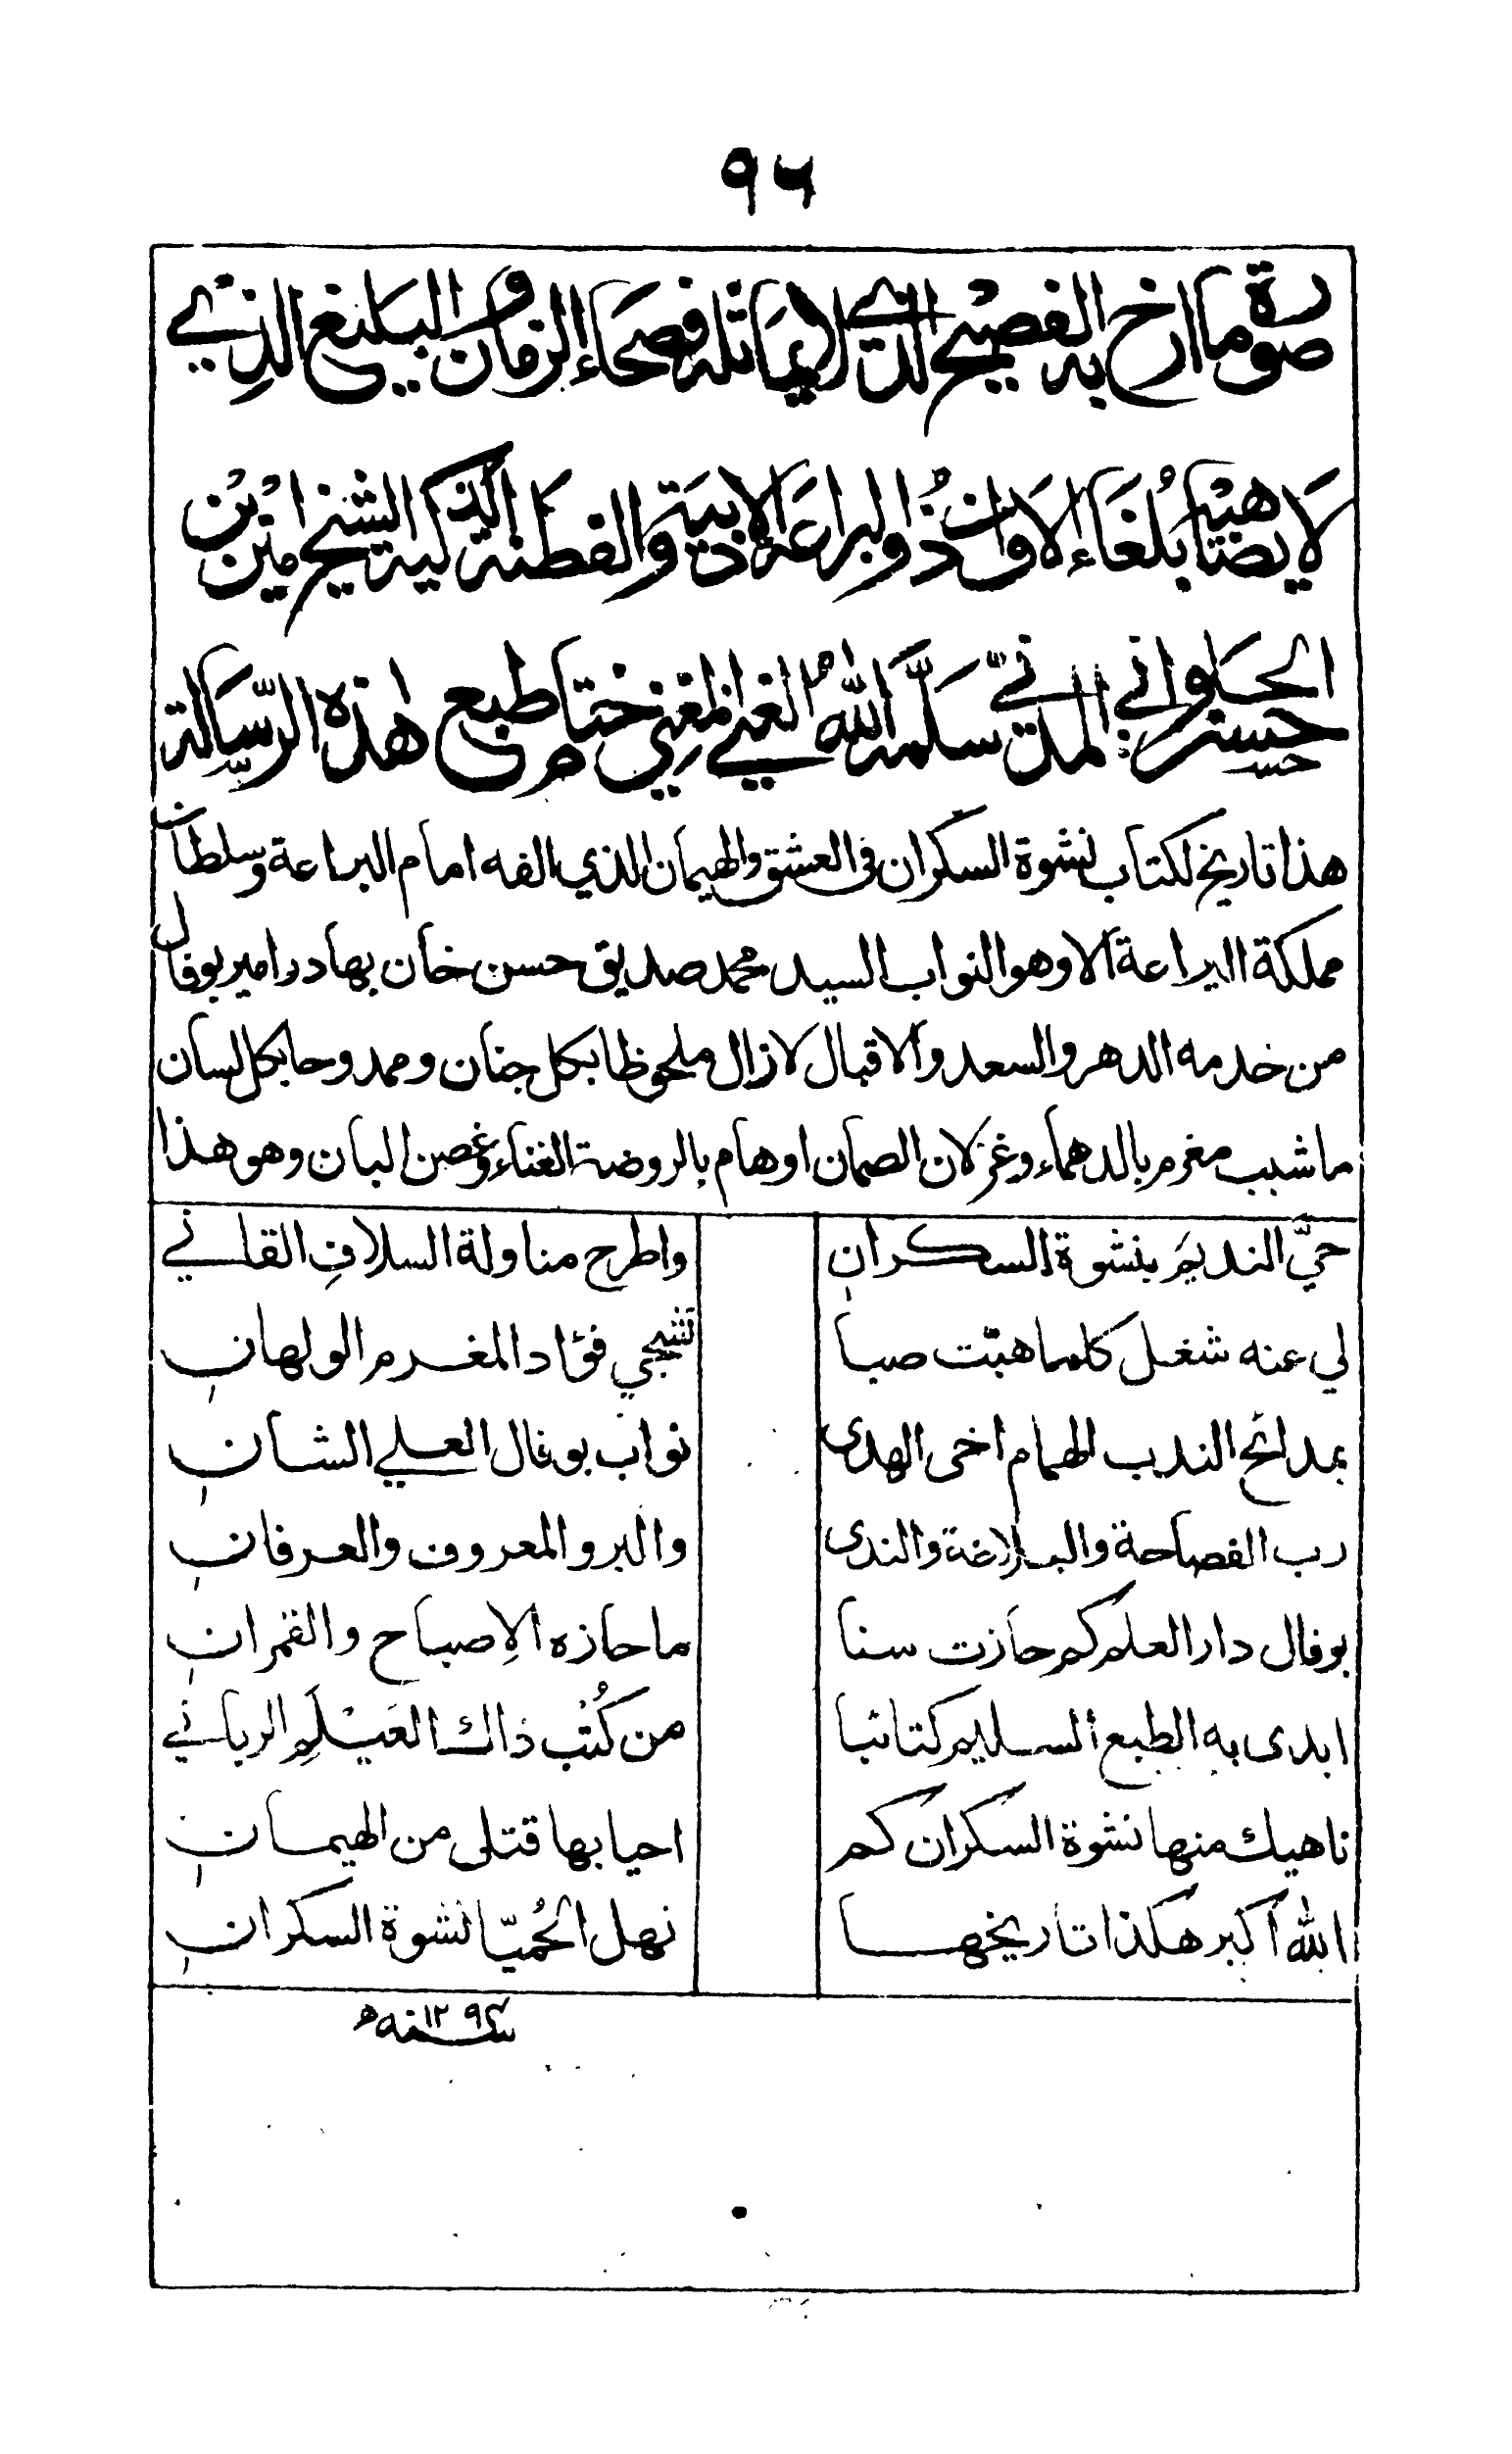 ٩٦
صورة ما ارخ به الفصيح الذي لا يماثله فصحاء الزمان والبليغ الذي
لا يضاهيه بلغاء الاوان ذو البراعة الادبية والفطنة الذكية الشيخ امين بن
حسن الحلواني المدني سلّمه الله الغني المغني ختام طبع هذه الرسالة
هذا تاريخ لكتاب نشوة السكران في العشق والهيمان الذي الفه امام البراعة وسلطان
مملكة اليراعة الا وهو النواب السيد محمد صديق حسن خان بهادر امير بوفال
من خدمه الدهر والسعد والاقبال لا زال ملحوظا بكل جنان وممدوحا بكل لسان
ما شبب مغرم بالدهماء وغزلان الصمان او هام بالروضة الغناء وغصن البان وهو هذا
حيَّ النديم بنشوة السكران واطرح مناولة السلافِ القاني
لي عنه شغل كلما هبّت صبا تشجي فؤاد المغرم الولهانِ
بمدائح الندب الهمام اخى الهدى نواب بوفال العلي الشانِ
رب الفصاحة والبلاغة والندى والبر والمعروف والعرفانِ
بوفال دار العلم كم حازت سنا ما حازه الاِصباح والقمرانِ
ابدى به الطبع السليم كتائبا من كُتْب ذاك العَيْلَمِ الرباني
ناهيك منها نشوة السكران كم احيا بها قتلى من الهيمانِ
الله اكبر هكذا تاريخها نهل الحُميّا نشوة السكرانِ
سنه ١٢٩٤ ه